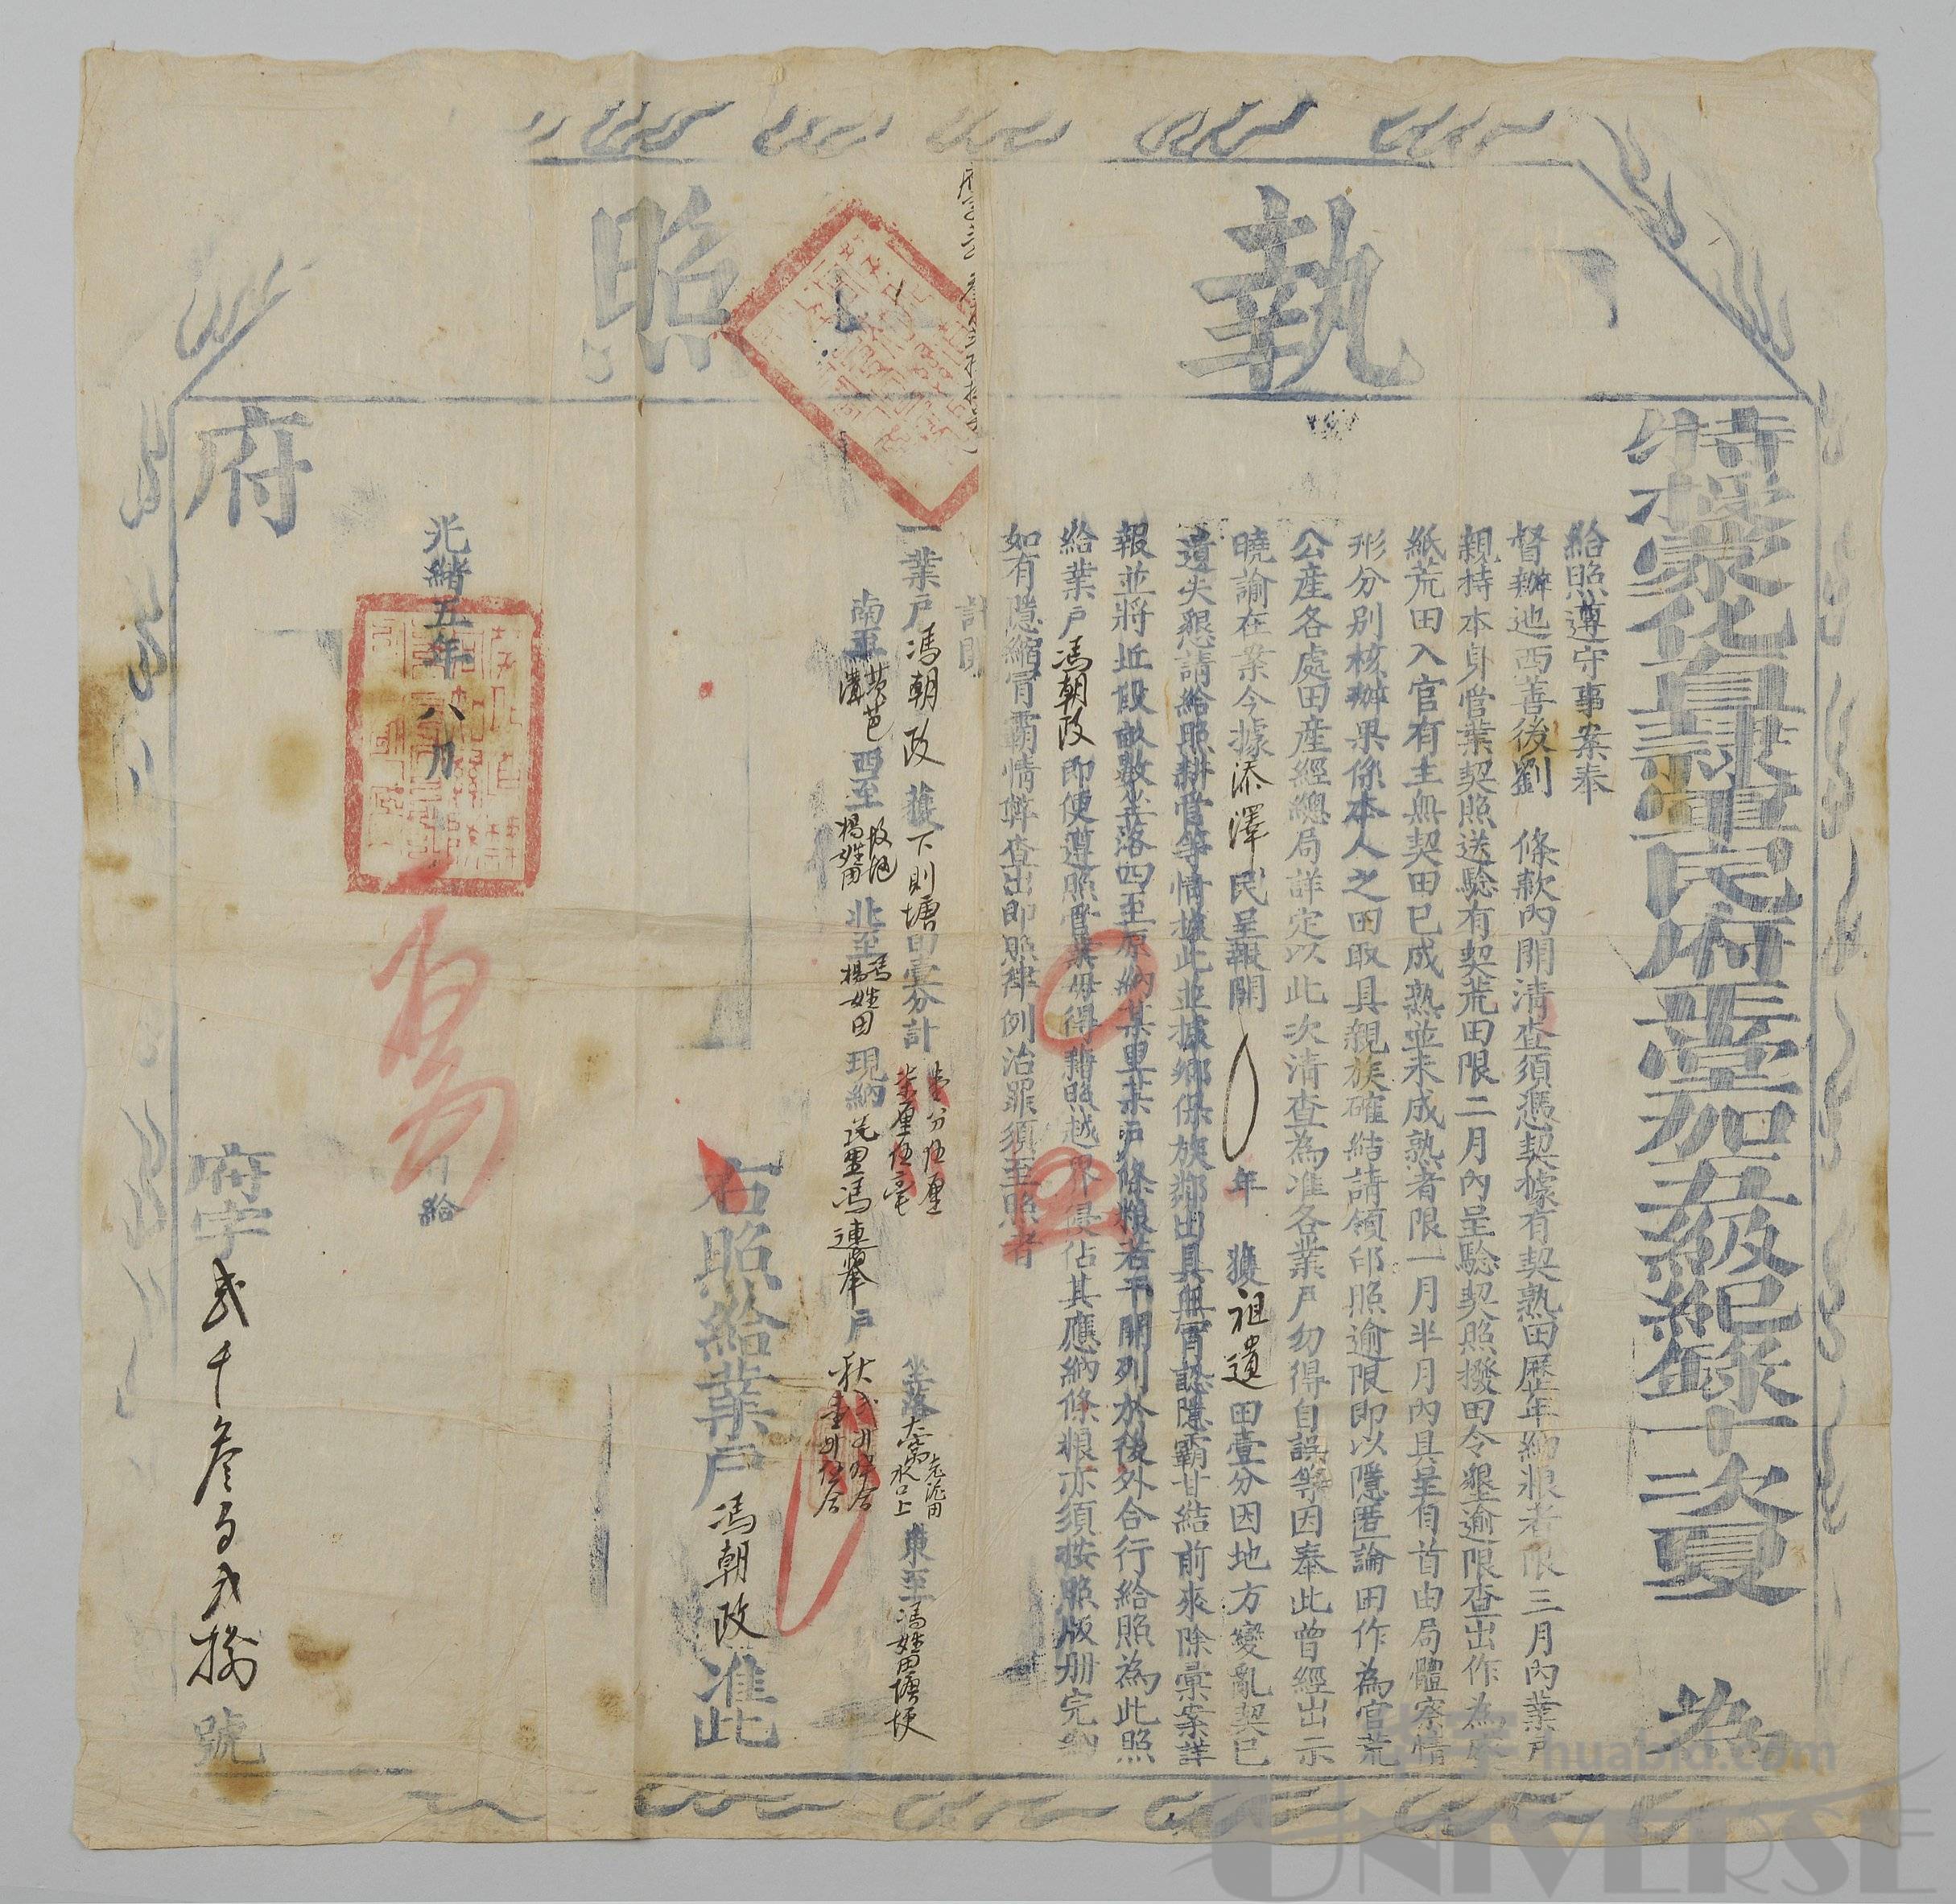 執照
特授蒙化直隸軍民府當加五級紀錄十次夏 為
給照遵守事案奉
督辦迤西善後劉 條款內開清查須憑契據有契熟田歷年納粮者限三月內業戶
親持本身管業契照送驗有契荒田限二月內呈驗契照撥田令墾逾限查出作為廢
紙荒田入官有主無契田已成熟並未成熟者限一月半月內具呈自首由局體察情
形分別核辦果係本人之田取具親族確結請領印照逾限即以隱匿論田作為官荒
公產各處田產經總局詳定以此次清查為准各業戶勿得自誤等因奉此曾經出示
曉諭在案今據添澤民呈報開 年 獲祖遺田壹分因地方變亂契已
遺失懇請給照耕管等情據此並據鄉保族鄰出具無冒認隱霸甘結前來除彙案詳
報並將坵段畝數坐落四至原納某里某戶條粮若干開列於後外合行給照為此照
給業戶馮朝政即使遵照管業毋得藉照越界侵佔其應納條粮亦須按照版册完納
如有隱縮冒霸情弊查出即照律例治罪須至照者
計開
一業戶馮朝政 獲下則塘田壹分計 分伍厘 厘伍毫 坐落大窩水口上 東至馮姓田塘埂
南至 溝 西至 楊姓田 北至馮楊姓田 現納 里馮連舉戶秋
右照給業戶馮朝政准此
光緒五年六月 給
府
府字弍千叁百 拾 號
huabid.com
UNIVERSE